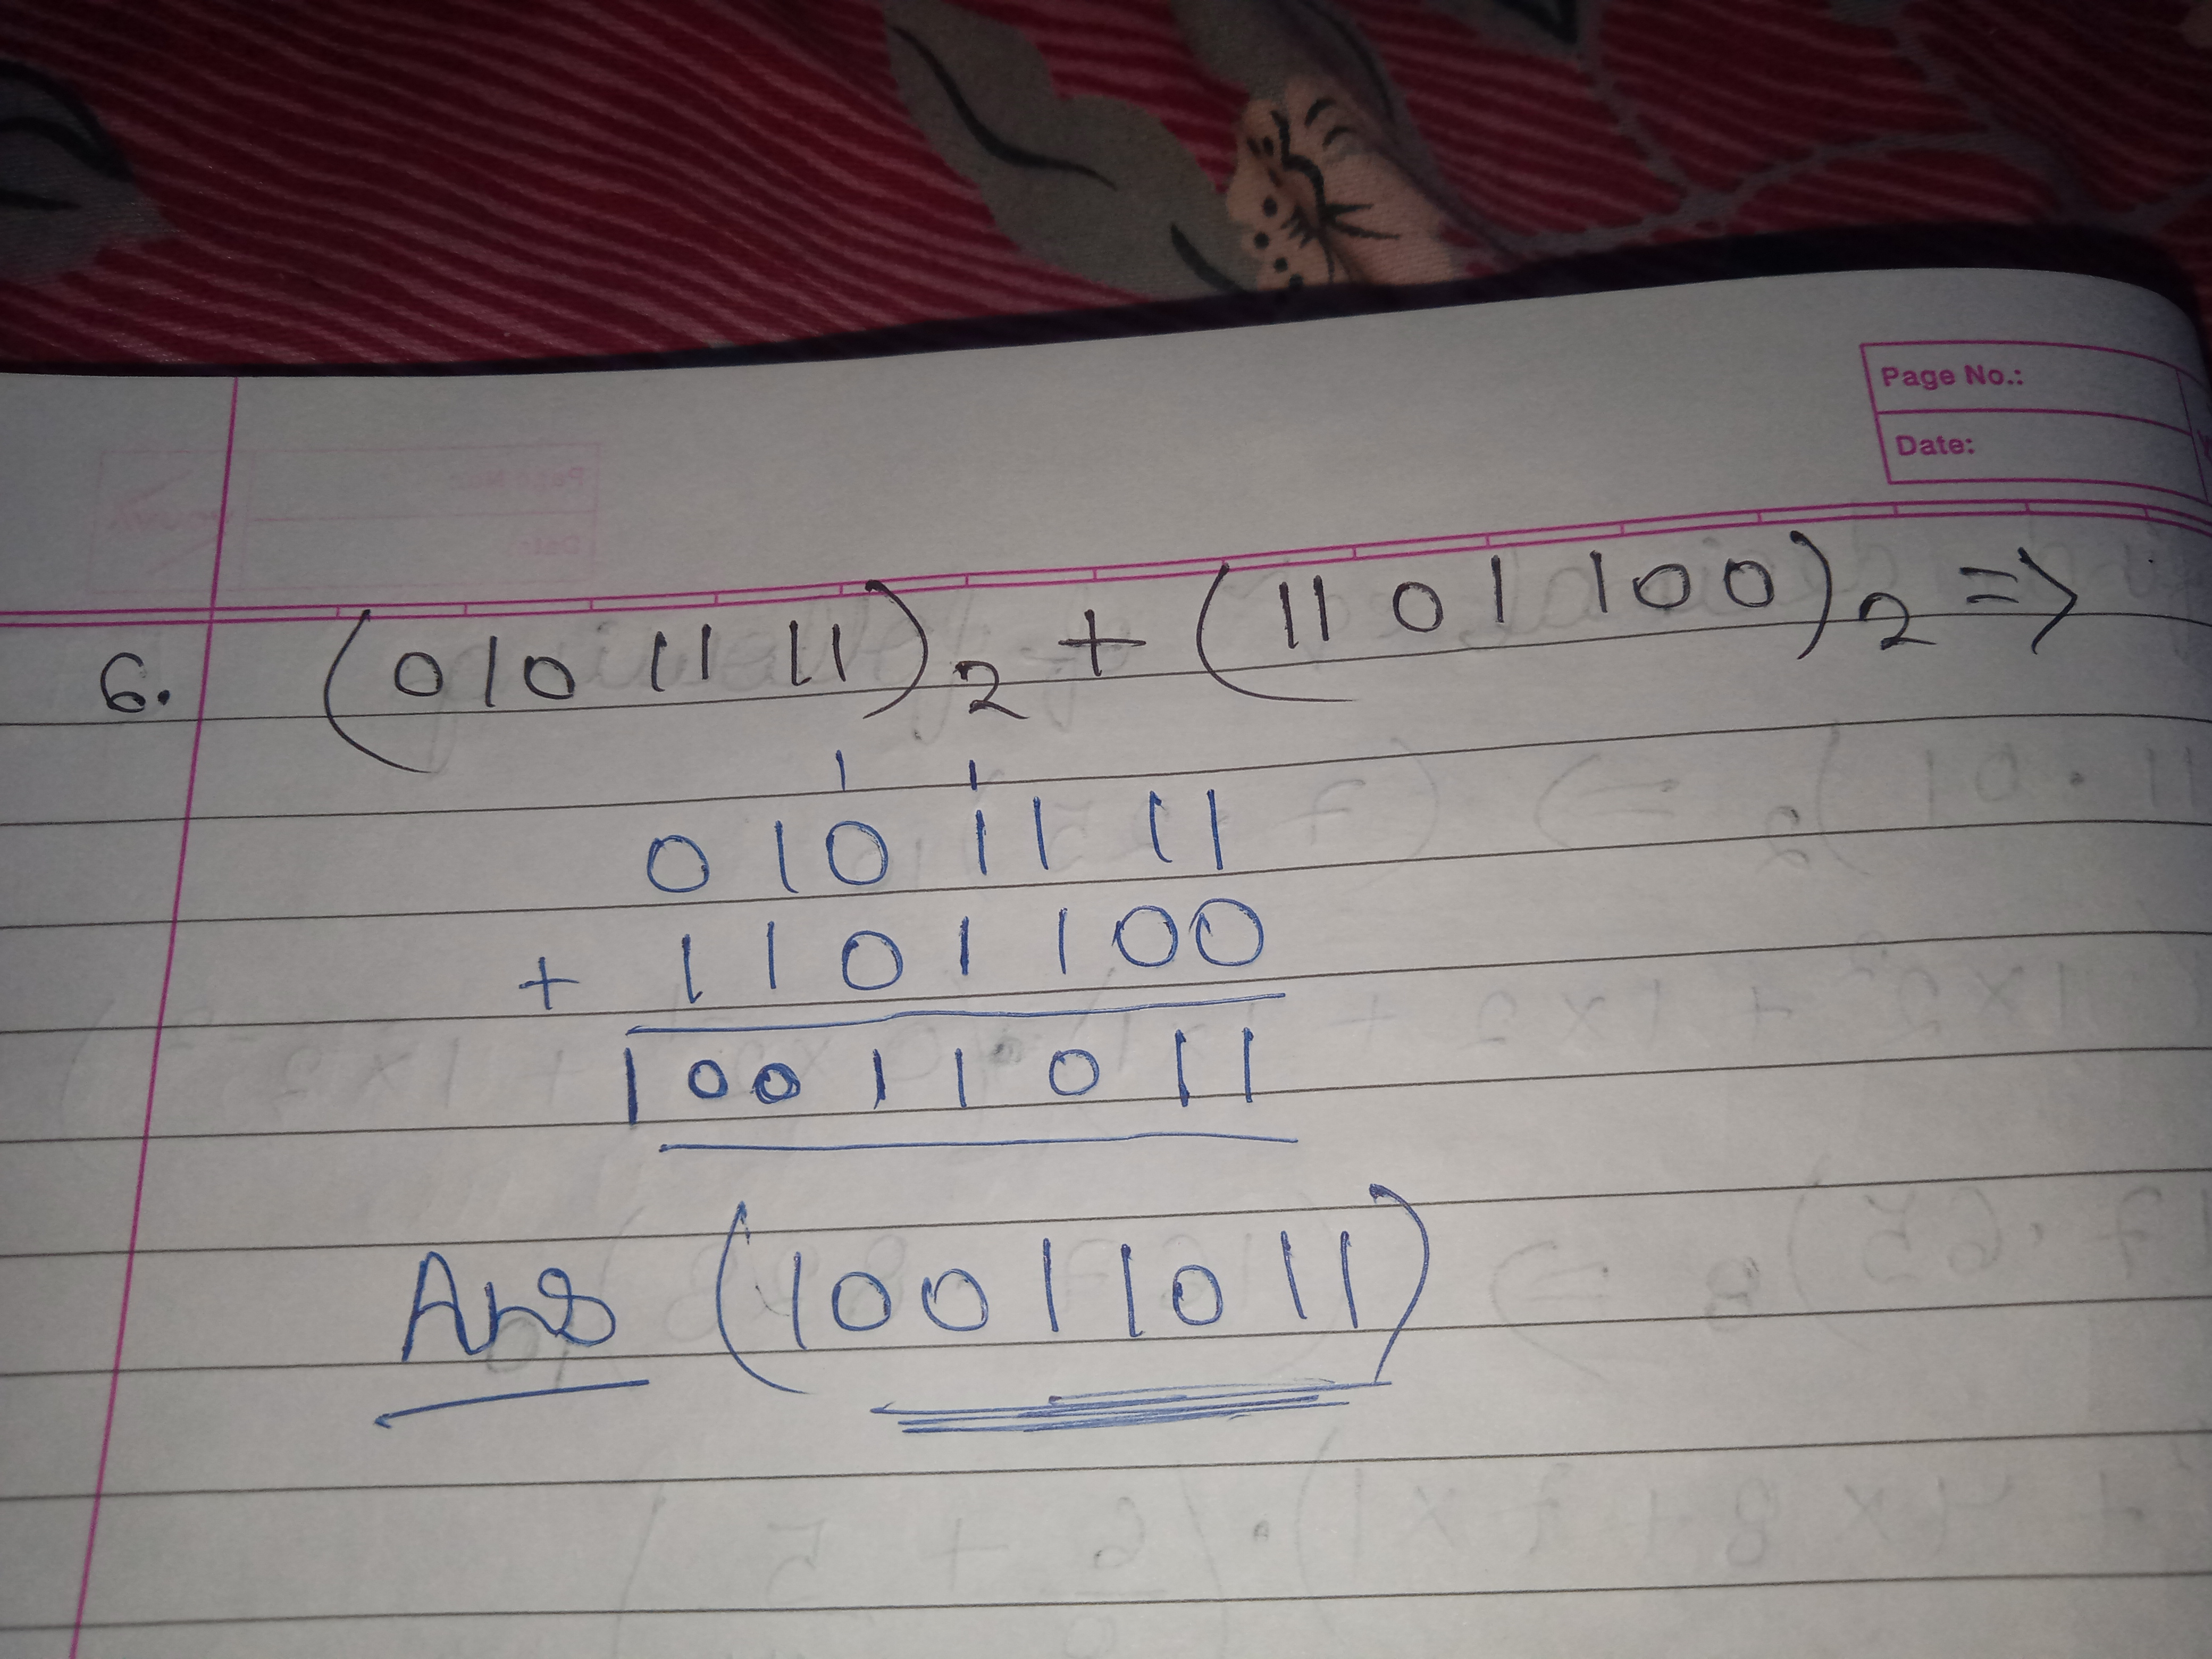 Page No.:
Date:
6. (0101111)₂ + (1101100)₂ =>
1 1
0101111
+ 1101100
10011011
Ans (10011011)